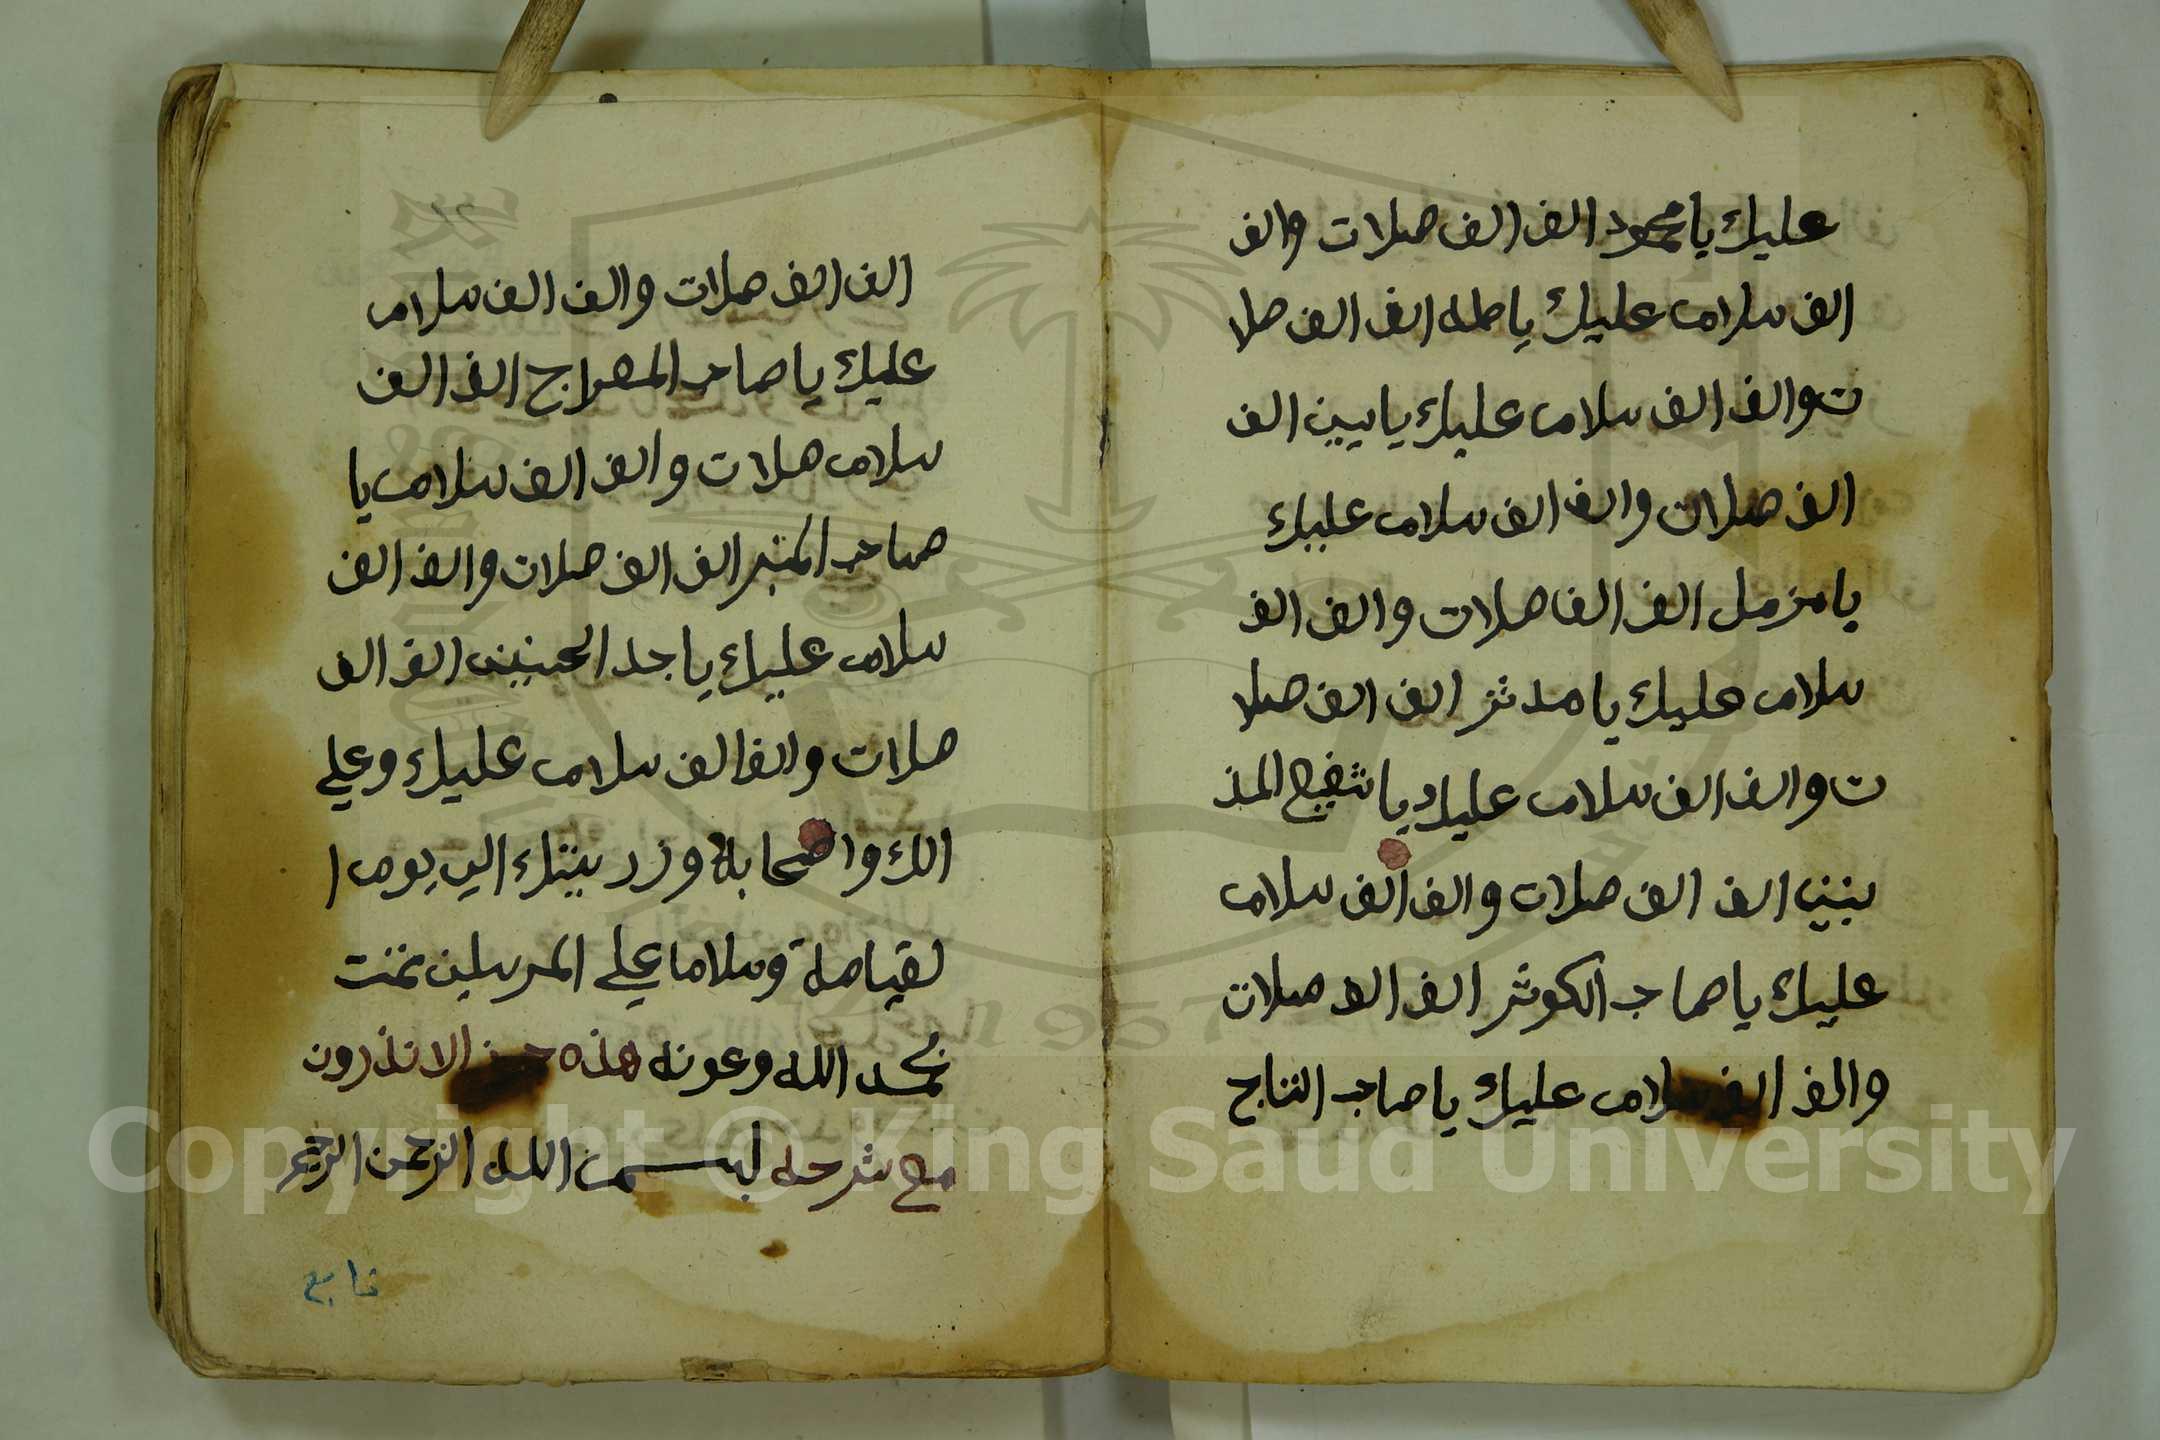 عليك يا محمود الف الف صلات والف
الف سلام عليك يا طه الف الف صلا
ت والف الف سلام عليك يا يسين الف
الف صلات والف الف سلام عليك
يا مزمل الف الف صلات والف الف
سلام عليك يا مدثر الف الف صلا
ت والف الف سلام عليك يا شفيع المذ
نبين الف الف صلات والف الف سلام
عليك يا صاحب الكوثر الف الف صلات
والف الف سلام عليك يا صاحب التاج
الف الف صلات والف الف سلام
عليك يا صاحب المعراج الف الف
سلام صلات والف الف سلام يا
صاحب المنبر الف الف صلات والف الف
سلام عليك يا جد الحسنين الف الف
صلات والف الف سلام عليك وعلي
الك واصحابه وزريتك الي يوم ا
لقيامة وسلاما علي المرسلين تمت
بحمد الله وعونه هذه الاندرون
مع شرحه بسم الله الرحمن الرحيم
تابع
Copyright © King Saud University
1957